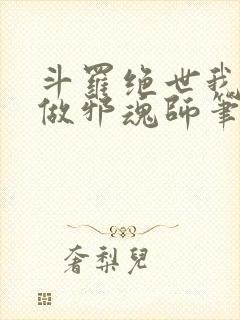 斗羅绝世我
做邪魂師筆
奢梨兒